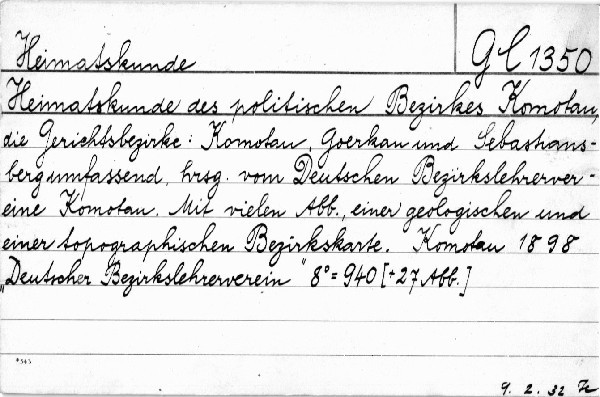 Heimatskunde
Gl 1350
Heimatskunde des politischen Bezirkes Komotau,
die Gerichtsbezirke: Komotau, Goerkau und Sebastians-
berg umfassend, hrsg. vom Deutschen Bezirkslehrerver-
eine Komotau. Mit vielen Abb., einer geologischen und
einer topographischen Bezirkskarte. Komotau 1898
„Deutscher Bezirkslehrerverein" 8° = 940 [+27 Abb.]
9. 2. 32